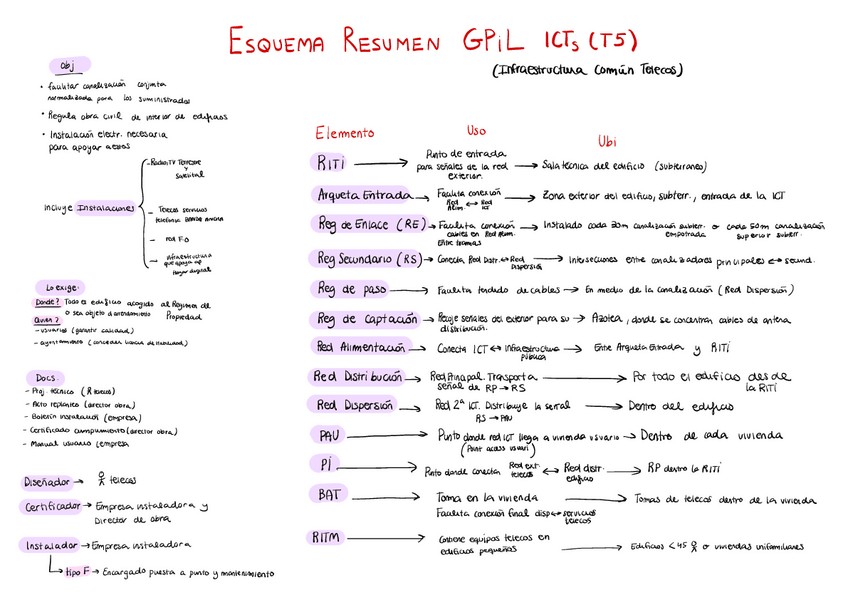 ESQUEMA RESUMEN GPiL ICTs (T5)
(Infraestructura Común Telecos)
Obj
• Facilitar canalización conjunta
normalizada para los suministrados
• Regula obra civil de interior de edificios
• Instalación electr. necesaria
para apoyar
Incluye Instalaciones
- Radio/TV Terrestre
y Satelital
- Telecos servicios
telefonía BANDA ANCHA
- red F.O
- infraestructura
que apoya
hogar digital
Lo exige:
Dónde? Todo edificio acogido al Régimen de
Propiedad
o sea objeto d arrendamiento
Quien?
- usuarios (garantir calidad)
- ayuntamiento (conceder licencia de
Docs.
- Proj. técnico (telecos)
- Acto replanteo (director obra)
- Boletín instalación (empresa)
- Certificado cumplimiento (director obra)
- Manual usuario (empresa)
Diseñador → telecos
Certificador → Empresa instaladora y
Director de obra
Instalador → Empresa instaladora
tipo F → Encargado puesta a punto y mantenimiento
Elemento Uso Ubi
RITI → Punto de entrada
para señales de la red
exterior. → Sala técnica del edificio (subterraneo)
Arqueta Entrada → Facilita conexión
Red Alim. ↔ Red ICT → Zona exterior del edificio, subterr., entrada de la ICT
Reg de Enlace (RE) → Facilita conexión
cables en Red Alim.
Entre tramos → Instalado cada 30m canalización subterr. o cada 50m canalización
empotrada superior subterr.
Reg Secundario (RS) → Conecta Red Distr. ↔ Red
Dispersión → Intersecciones entre canalizadores principales ↔ secund.
Reg de paso → Facilita tendido de cables → En medio de la canalización (Red Dispersión)
Reg de Captación → Recoje señales del exterior para su
distribución. → Azotea, donde se concentran cables de antena
Red Alimentación → Conecta ICT ↔ Infraestructura
pública → Entre Arqueta Entrada y RITI
Red Distribución → Red Principal. Transporta
señal de RP → RS → Por todo el edificio desde
la RITI
Red Dispersión → Red 2ª ICT. Distribuye la señal
RS → PAU → Dentro del edificio
PAU → Punto donde red ICT llega a vivienda usuario → Dentro de cada vivienda
(Punt acces usuari)
PI → Punto donde conectan Red ext.
telecos ↔ Red distr.
edificio → RP dentro la RITI
BAT → Toma en la vivienda → Tomas de telecos dentro de la vivienda
Facilita conexión final disp ↔ servicios
telecos
RITM → Contiene equipos telecos en
edificios pequeños → Edificios <45 o viviendas unifamiliares